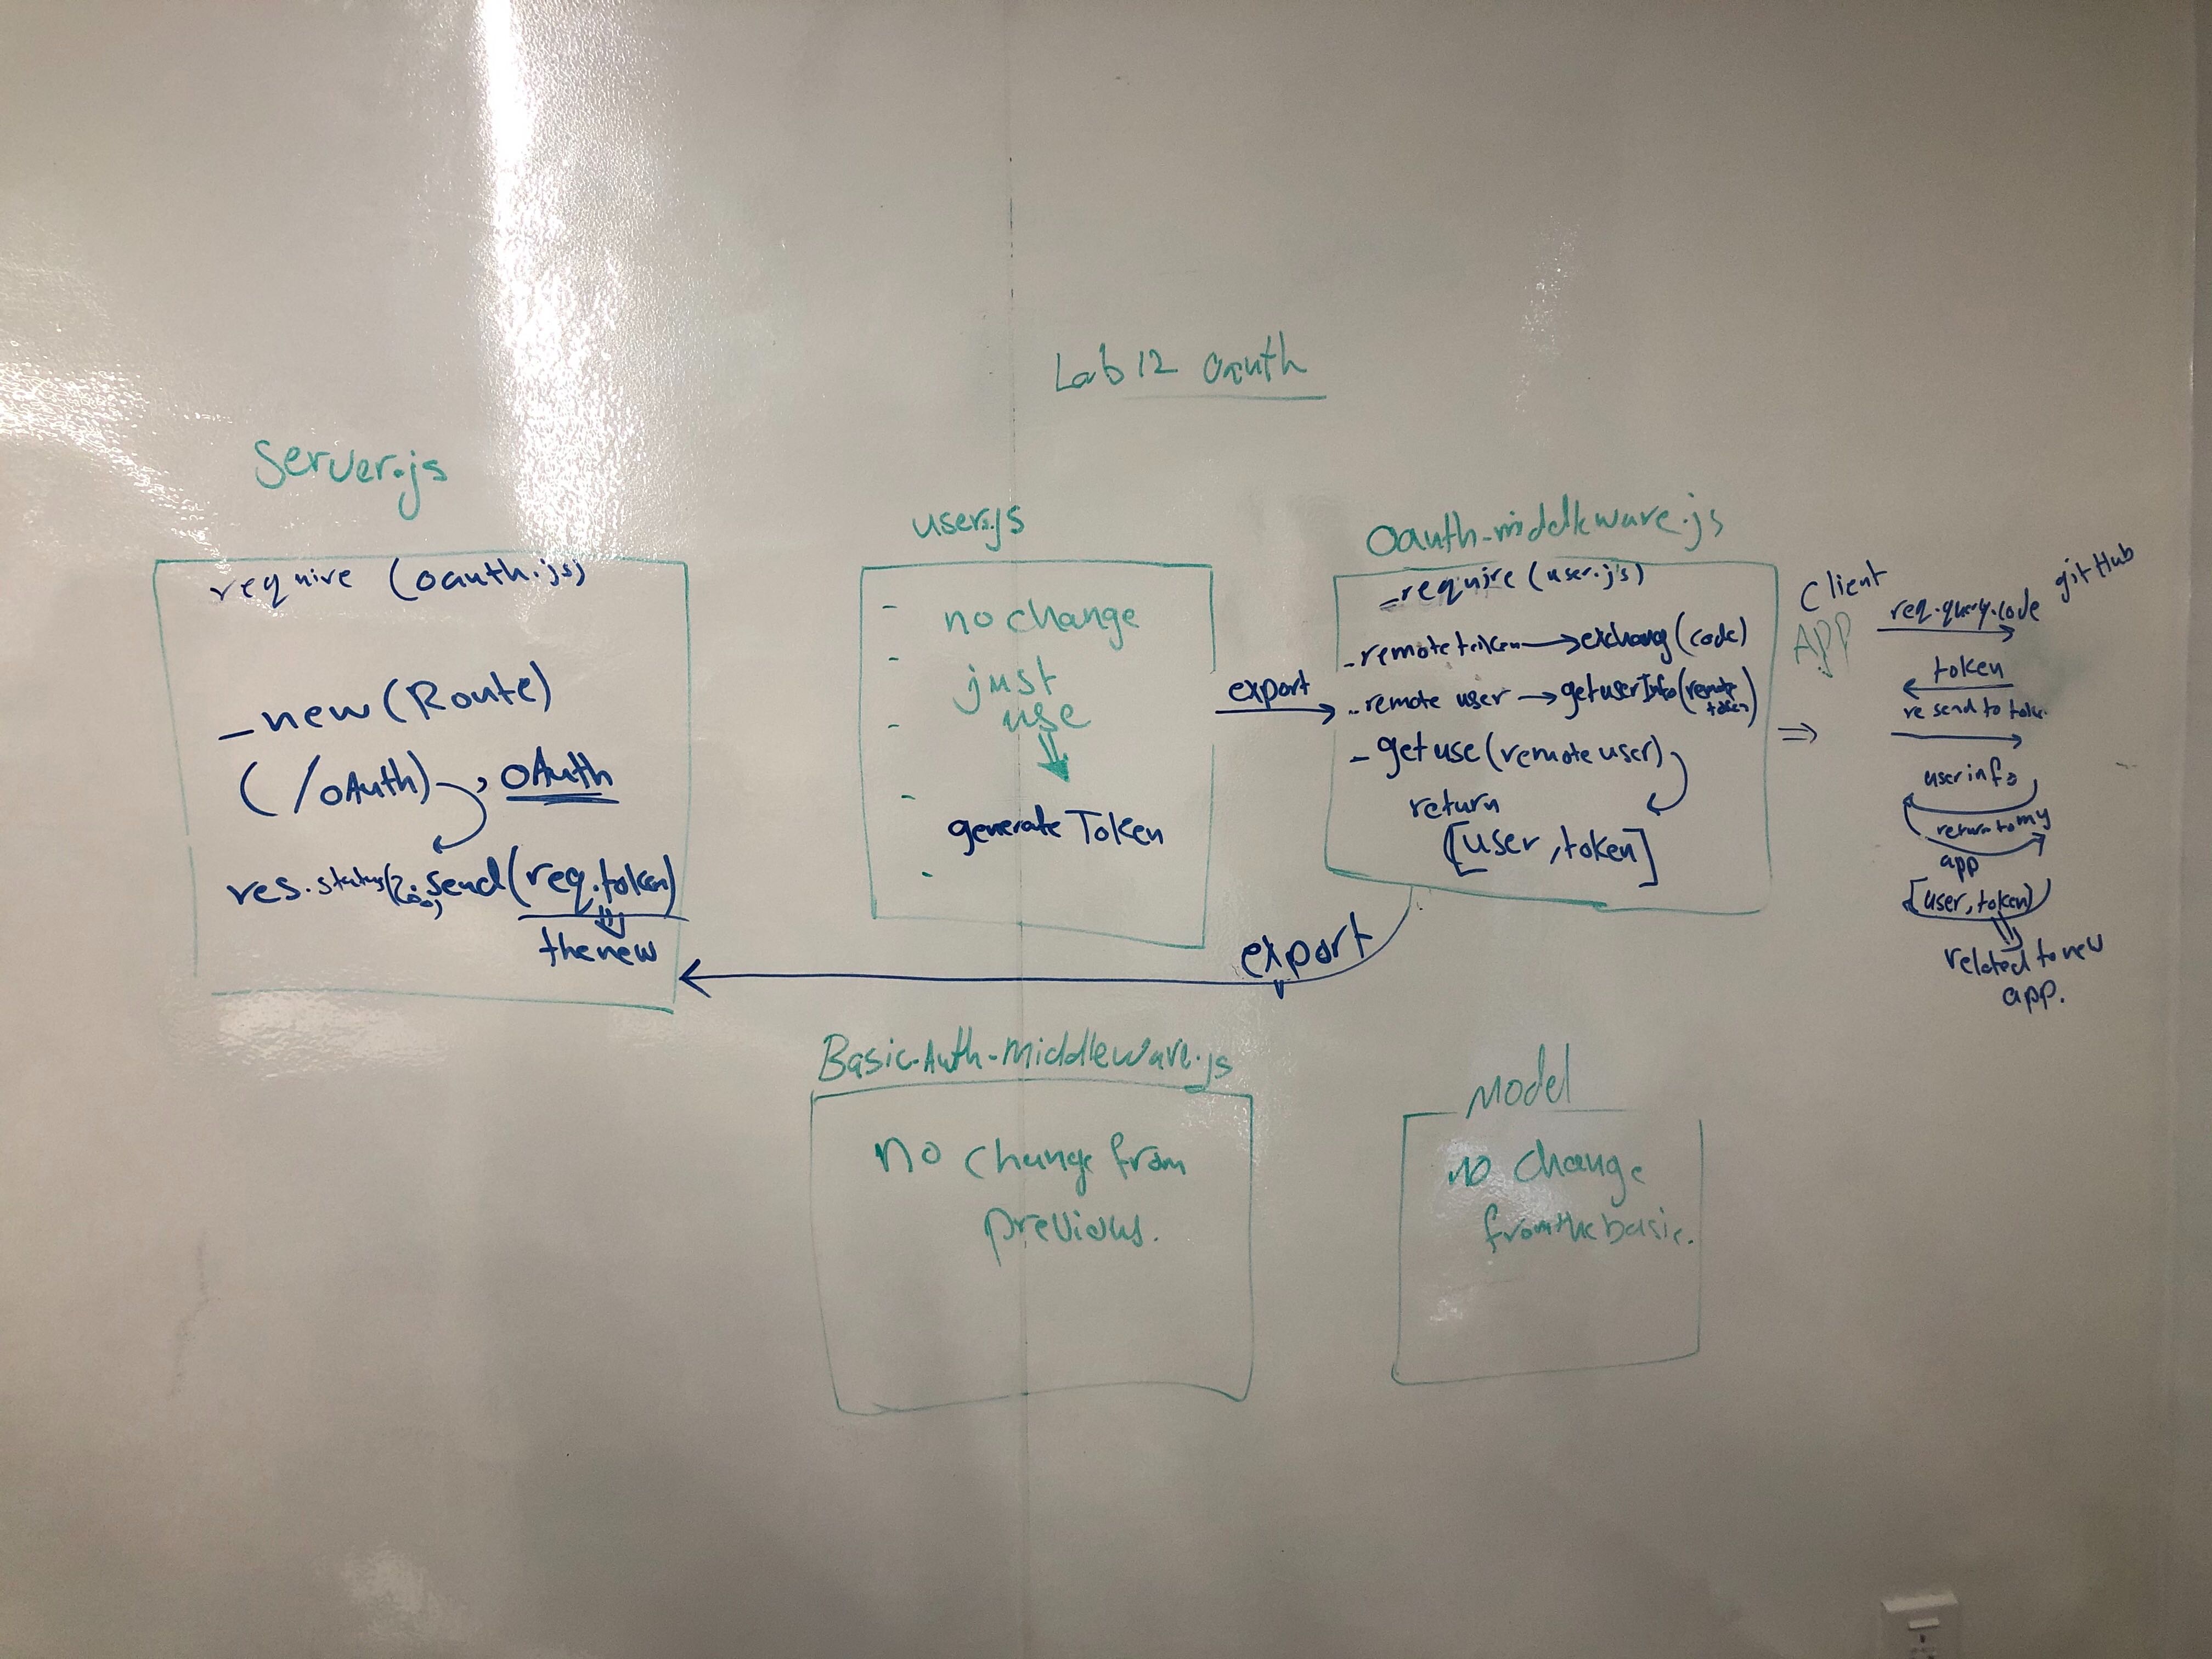 Lab 12 oauth
Server.js
require (oauth.js)
_ new (Route)
(/oAuth) , oAuth
res.status(200).send(req.token)
the new
user.js
- no change
- just
- use
- generate Token
-
export
oauth-middleware.js
- require (user.js)
- remote token → exchang (code)
- remote user → getuserInfo (remote token)
- getuse (remote user)
return
[user, token]
export
Client
APP
gitHub
req.query.code
token
re send to token
userinfo
return to my
app
[user, token]
related to new
app.
Basic-Auth-Middleware.js
No change from
previous.
Model
no change
from the basic.